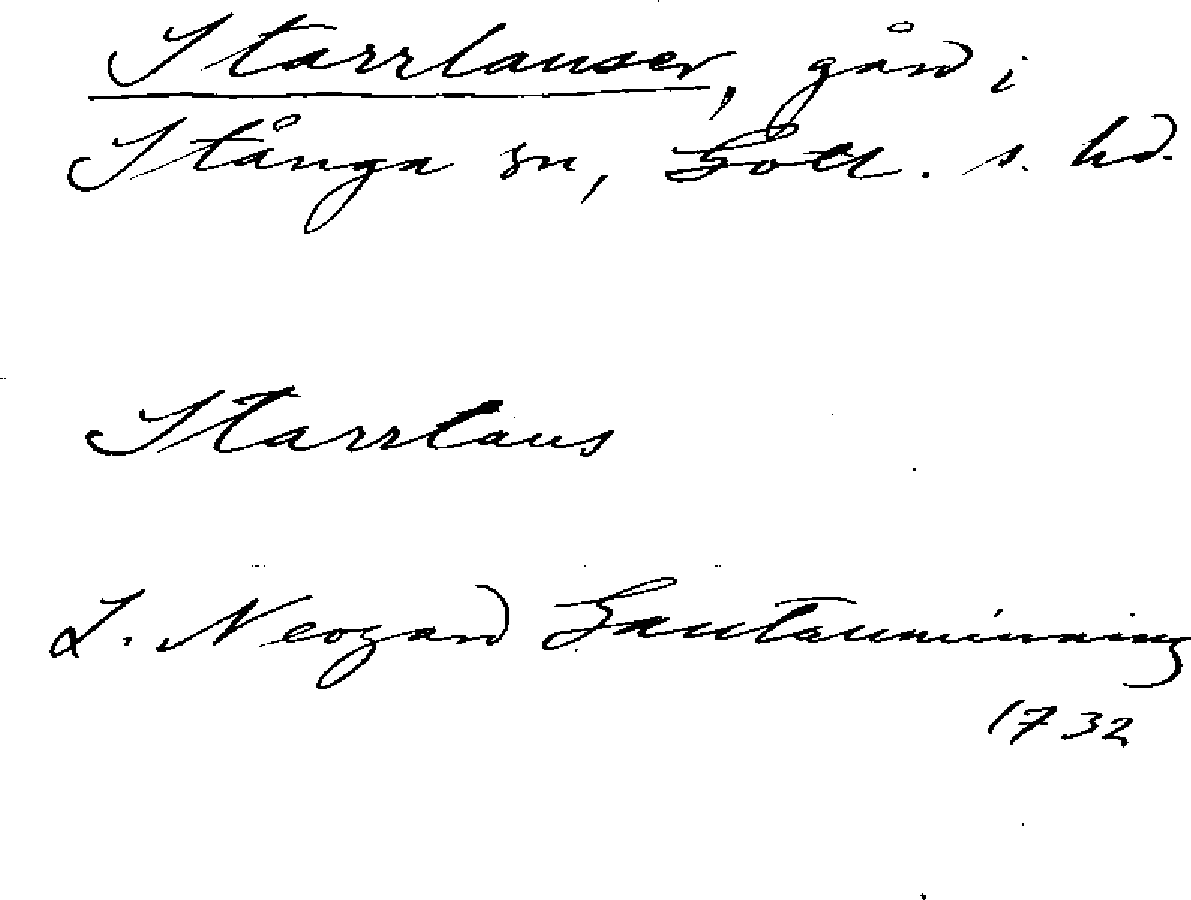 Starrlauser, gård i
Stånga sn, Gotl. s. hd.
Starrlaus
L. Neogard Gautauminning
1732